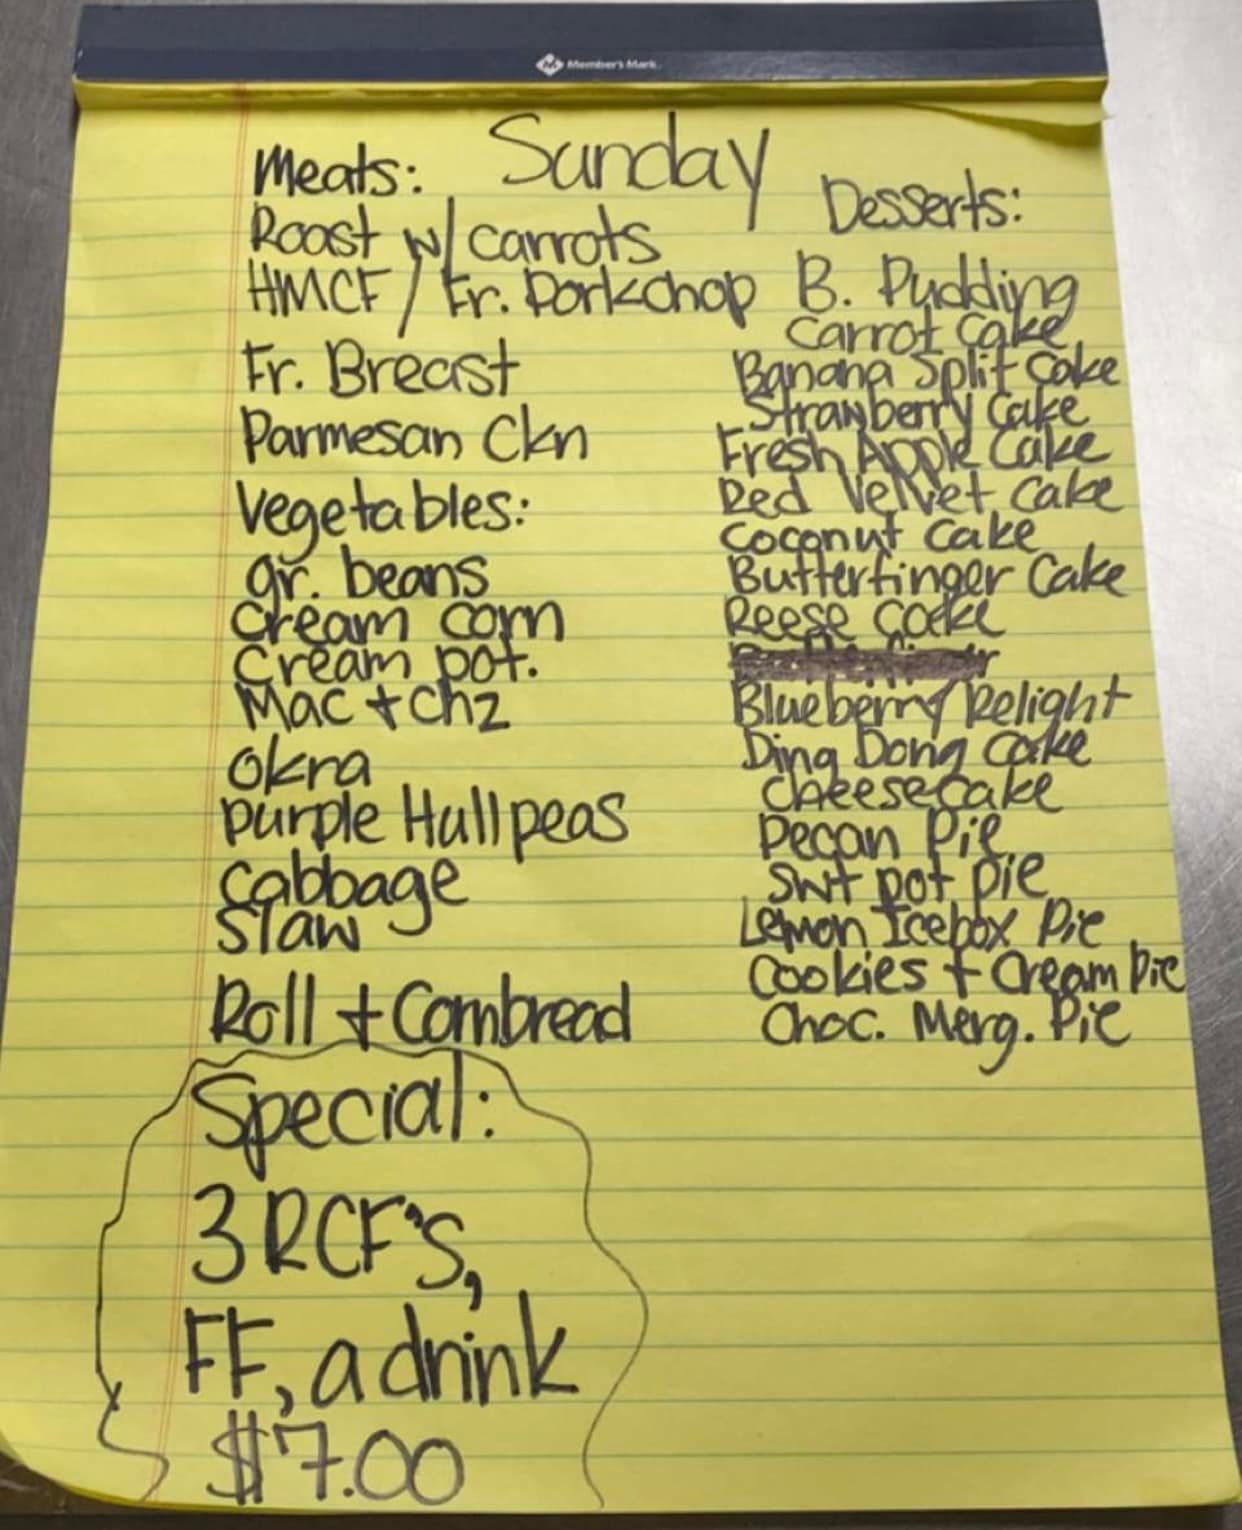 Member's Mark
Sunday
Meats:
Roast w/ carrots
HMCF / Fr. Porkchop
Fr. Breast
Parmesan Ckn
Vegetables:
gr. beans
Cream corn
Cream pot.
Mac + Chz
Okra
Purple Hull peas
Cabbage
Slaw
Roll + Cornbread
Special:
3 RCF's,
FF, a drink
$7.00
Desserts:
B. Pudding
Carrot Cake
Banana Split Cake
Strawberry Cake
Fresh Apple Cake
Red Velvet Cake
Coconut Cake
Butterfinger Cake
Reese Cake
Blueberry Delight
Ding Dong Cake
Cheesecake
Pecan Pie
Swt pot pie
Lemon Icebox Pie
Cookies + Cream Pie
Choc. Merg. Pie